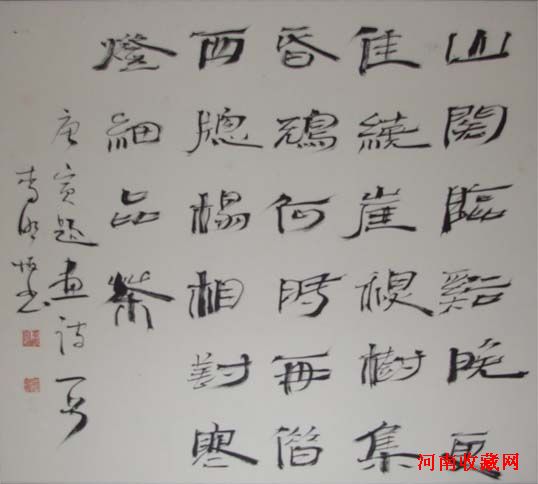 山閣臨谿晚更
佳繞崖秋樹集
昏鴉何時再借
西牕榻相對寒
燈細品茶
唐寅題畫詩一首
李 書
河南收藏网